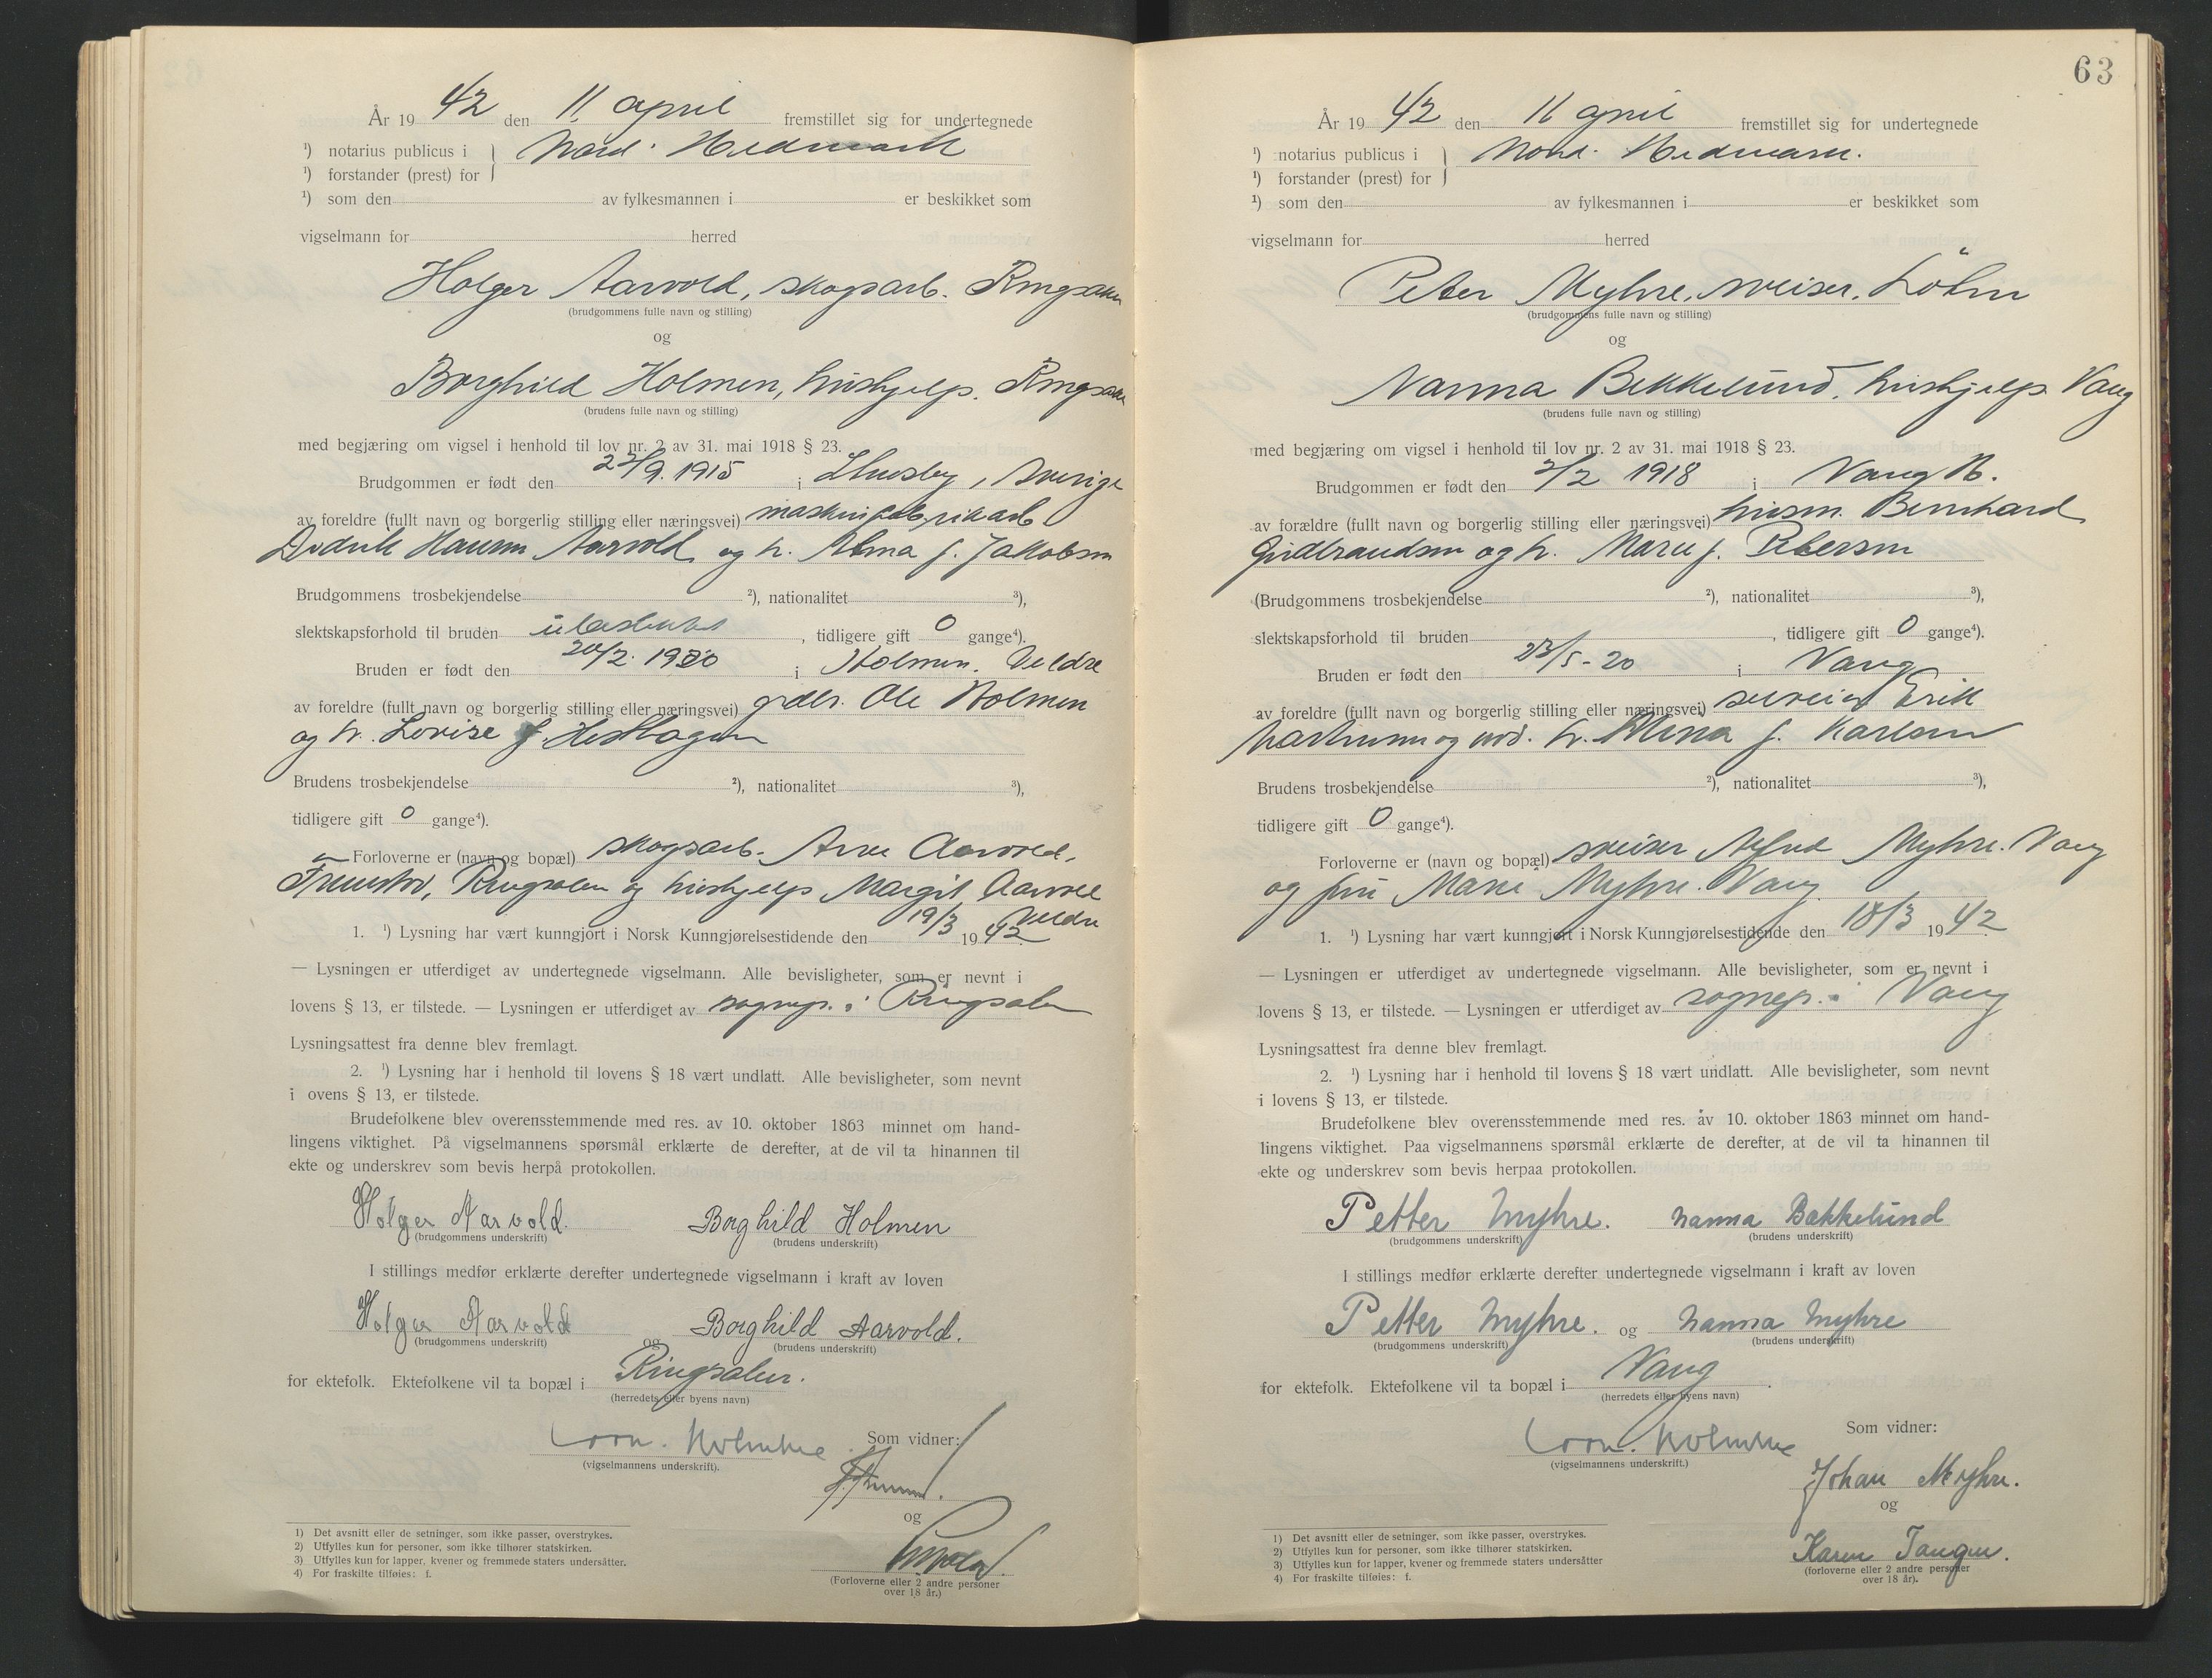 År 19 42 den 11 april fremstillet sig for undertegnede
¹) notarius publicus i Nord-Hedmark
¹) forstander (prest) for
¹) som den av fylkesmannen i er beskikket som
vigselmann for herred
Holger Aarvold, skogsarb. Ringsaker
(brudgommens fulle navn og stilling)
og
Borghild Holmen, hushjelp. Ringsaker
(brudens fulle navn og stilling)
med begjæring om vigsel i henhold til lov nr. 2 av 31. mai 1918 § 23.
Brudgommen er født den 22/9. 1915 i Husby, Sverige
av foreldre (fullt navn og borgerlig stilling eller næringsvei) maskinfabrikarb
Aarvold og h. Alma f. Jakobsen
Brudgommens trosbekjendelse ²), nationalitet ³),
slektskapsforhold til bruden ubeslektet, tidligere gift 0 gange⁴).
Bruden er født den 20/2. 1920 i Holmen. Veldre
av foreldre (fullt navn og borgerlig stilling eller næringsvei) grdbr. Ole Holmen
og h. Lovise f.
Brudens trosbekjendelse ²), nationalitet ³),
tidligere gift 0 gange⁴).
Forloverne er (navn og bopæl) skogsarb. Arne Aarvold,
Ringsaker og hushjelp Margit Aarvold
Veldre
1. ¹) Lysning har vært kunngjort i Norsk Kunngjørelsestidende den 19/3 19 42.
— Lysningen er utferdiget av undertegnede vigselmann. Alle bevisligheter, som er nevnt i
lovens § 13, er tilstede. — Lysningen er utferdiget av sognep. i Ringsaker
Lysningsattest fra denne blev fremlagt.
2. ¹) Lysning har i henhold til lovens § 18 vært undlatt. Alle bevisligheter, som nevnt
i ovens § 13, er tilstede.
Brudefolkene blev overensstemmende med res. av 10. oktober 1863 minnet om hand-
lingens viktighet. På vigselmannens spørsmål erklærte de derefter, at de vil ta hinannen til
ekte og underskrev som bevis herpå protokollen.
Holger Aarvold. Borghild Holmen
(brudgommens underskrift) (brudens underskrift)
I stillings medfør erklærte derefter undertegnede vigselmann i kraft av loven
Holger Aarvold og Borghild Aarvold.
(brudgommens underskrift) (brudens underskrift)
for ektefolk. Ektefolkene vil ta bopæl i Ringsaker.
(herredets eller byens navn)
Som vidner:
(vigselmannens underskrift).
og
(Forloverne eller 2 andre personer
over 18 år.)
1) Det avsnitt eller de setninger, som ikke passer, overstrykes.
2) Utfylles kun for personer, som ikke tilhører statskirken.
3) Utfylles kun for lapper, kvener og fremmede staters undersåtter.
4) For fraskilte tilføies: f.
63
År 19 42 den 11 april fremstillet sig for undertegnede
¹) notarius publicus i Nord-Hedmark.
¹) forstander (prest) for
¹) som den av fylkesmannen i er beskikket som
vigselmann for herred
Peter Myhre, sveiser, Löten
(brudgommens fulle navn og stilling)
og
Nanna Bekkelund, hushjelp. Vang
(brudens fulle navn og stilling)
med begjæring om vigsel i henhold til lov nr. 2 av 31. mai 1918 § 23.
Brudgommen er født den 2/2 1918 i Vang H.
av forældre (fullt navn og borgerlig stilling eller næringsvei) husm. Bernhard
Gudbrandsen og h. Marie f. Petersen
(Brudgommens trosbekjendelse ²), nationalitet ³),
slektskapsforhold til bruden , tidligere gift 0 gange⁴).
Bruden er født den 23/5-20 i Vang
av foreldre (fullt navn og borgerlig stilling eller næringsvei) Erik
f. Karlsen
Brudens trosbekjendelse ²), nationalitet ³),
tidligere gift 0 gange⁴).
Forloverne er (navn og bopæl) sveiser Alfred Myhre. Vang
og fru Marie Myhre. Vang.
1. ¹) Lysning har vært kunngjørt i Norsk Kunngjørelsestidende den 18/3 19 42
— Lysningen er utferdiget av undertegnede vigselmann. Alle bevisligheter, som er nevnt i
lovens § 13, er tilstede. — Lysningen er utferdiget av sognep. i Vang
Lysningsattest fra denne blev fremlagt.
2. ¹) Lysning har i henhold til lovens § 18 vært undlatt. Alle bevisligheter, som nevnt
i lovens § 13, er tilstede.
Brudefolkene blev overensstemmende med res. av 10. oktober 1863 minnet om hand-
lingens viktighet. Paa vigselmannens spørsmål erklærte de derefter, at de vil ta hinannen til
ekte og underskrev som bevis herpaa protokollen.
Petter Myhre. Nanna Bækkelund
(brudgommens underskrift) (brudens underskrift)
I stillings medfør erklærte derefter undertegnede vigselmann i kraft av loven
Petter Myhre. og Nanna Myhre
(brudgommens underskrift) (brudens underskrift)
for ektefolk. Ektefolkene vil ta bopæl i Vang.
(herredets eller byens navn)
Som vidner:
(vigselmannens underskrift.)
Johan Myhre.
og
Karen Tangen.
(forloverne eller 2 andre personer
over 18 år).
1) Det avsnitt eller de setninger, som ikke passer, overstrykes.
2) Utfylles kun for personer, som ikke tilhører statskirken.
3) Utfylles kun for lapper, kvener og fremmede staters undersåtter
4) For fraskilte tilføies: f.